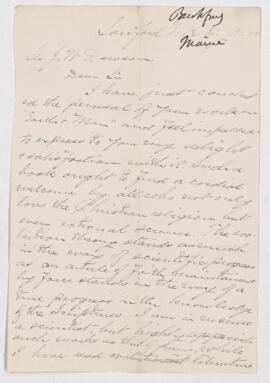 Beckford
Maine
Sanford
Sir J. W. Dawson
Dear Sir
I have just conclud
ed the perusal of your work on
"Earth & Man" and feel impelled
to express to you my delight
& satisfaction with it. Such a
book ought to find a cordial
welcome by all who not only
love the Christian religion but
even rational science. The evo
lution theory stands as much
in the way of scientific progress
as an article of faith
as stands in the way of a
true progress in the knowledge
of the Scriptures. I am in no sense
a scientist, but highly appreciate
such works as this of yours. While
I have read evolutionist literature